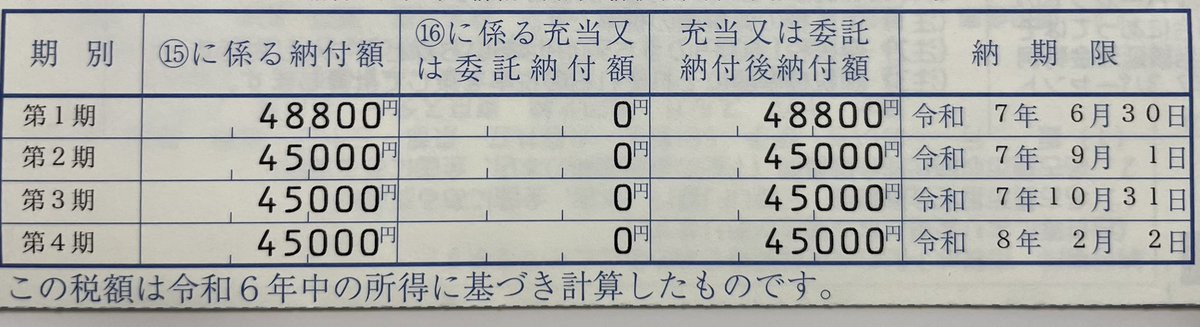 期別 ⑮に係る納付額 ⑯に係る充当又は委託納付額 充当又は委託納付後納付額 納期限
第1期 48800円 0円 48800円 令和 7年 6月30日
第2期 45000円 0円 45000円 令和 7年 9月 1日
第3期 45000円 0円 45000円 令和 7年10月31日
第4期 45000円 0円 45000円 令和 8年 2月 2日
この税額は令和6年中の所得に基づき計算したものです。